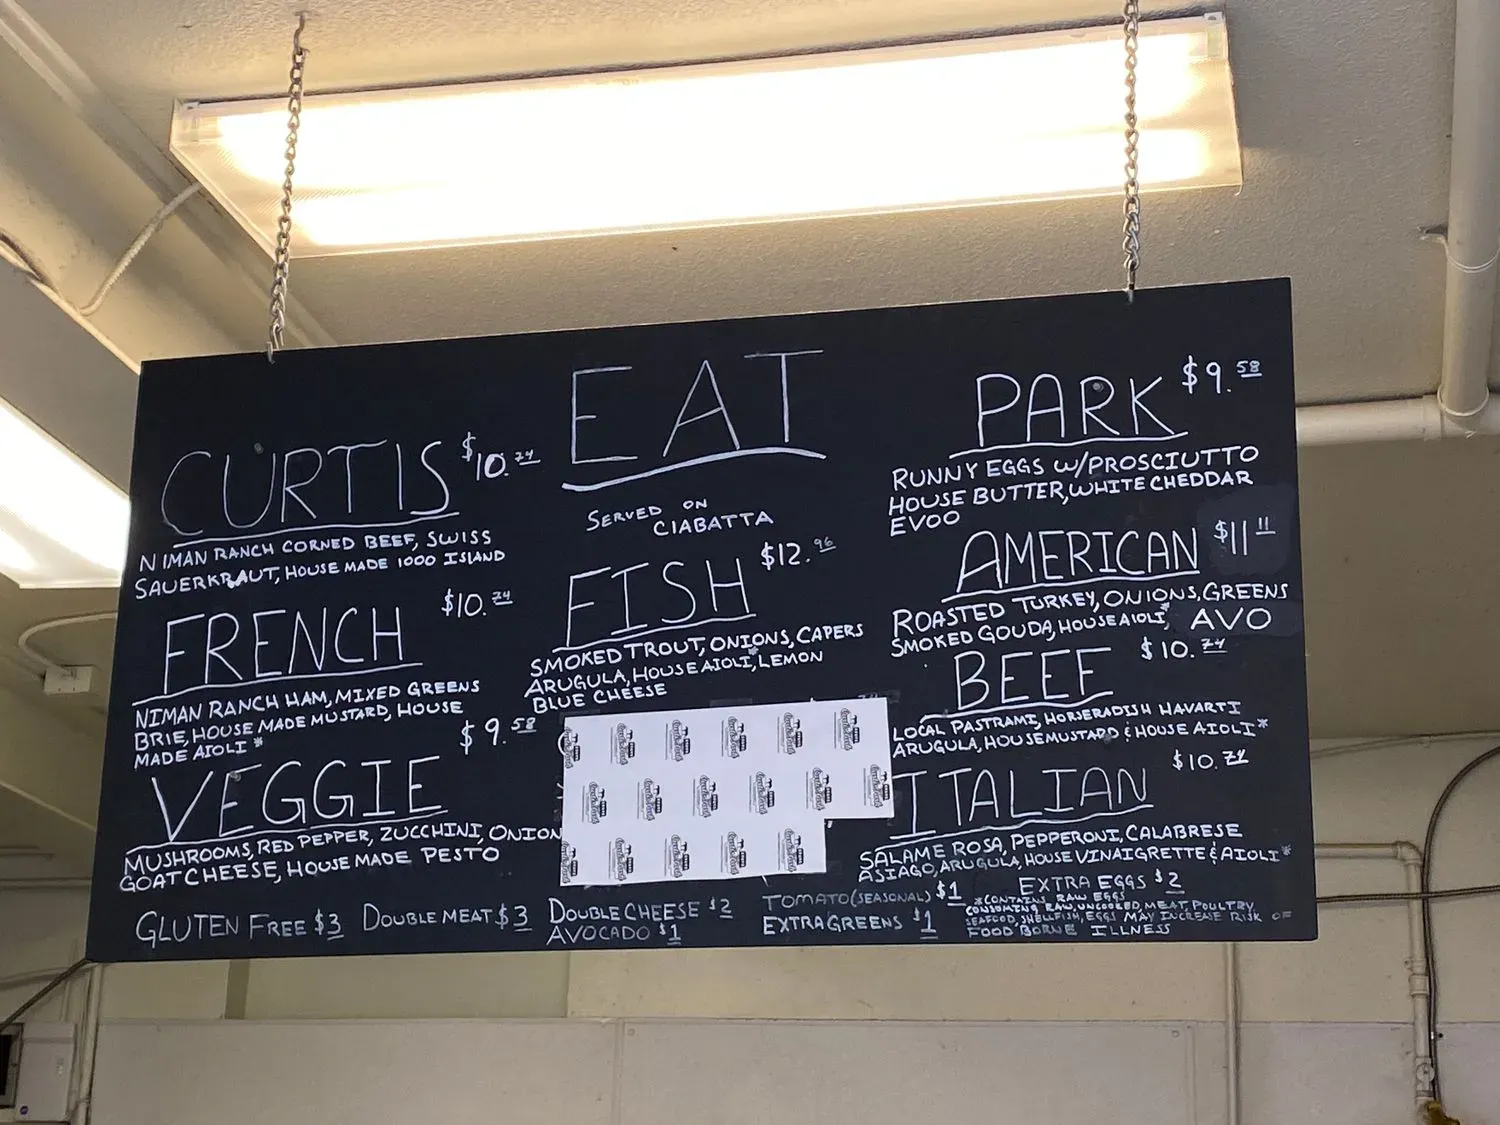 EAT
SERVED ON
CIABATTA
CURTIS $10.74
NIMAN RANCH CORNED BEEF, SWISS
SAUERKRAUT, HOUSE MADE 1000 ISLAND
FRENCH $10.74
NIMAN RANCH HAM, MIXED GREENS
BRIE, HOUSE MADE MUSTARD, HOUSE
MADE AIOLI *
VEGGIE $9.58
MUSHROOMS, RED PEPPER, ZUCCHINI, ONION
GOAT CHEESE, HOUSE MADE PESTO
FISH $12.96
SMOKED TROUT, ONIONS, CAPERS
ARUGULA, HOUSE AIOLI*, LEMON
BLUE CHEESE
PARK $9.58
RUNNY EGGS W/PROSCIUTTO
HOUSE BUTTER, WHITE CHEDDAR
EVOO
AMERICAN $11.11
ROASTED TURKEY, ONIONS, GREENS
SMOKED GOUDA, HOUSE AIOLI*, AVO
BEEF $10.74
LOCAL PASTRAMI, HORSERADISH HAVARTI
ARUGULA, HOUSE MUSTARD & HOUSE AIOLI*
ITALIAN $10.74
SALAME ROSA, PEPPERONI, CALABRESE
ASIAGO, ARUGULA, HOUSE VINAIGRETTE & AIOLI*
GLUTEN FREE $3
DOUBLE MEAT $3
DOUBLE CHEESE $2
AVOCADO $1
TOMATO (SEASONAL) $1
EXTRA GREENS $1
EXTRA EGGS $2
*CONTAINS RAW EGGS
CONSUMING RAW, UNCOOKED, MEAT, POULTRY,
SEAFOOD, SHELLFISH, EGGS MAY INCREASE RISK OF
FOOD BORNE ILLNESS